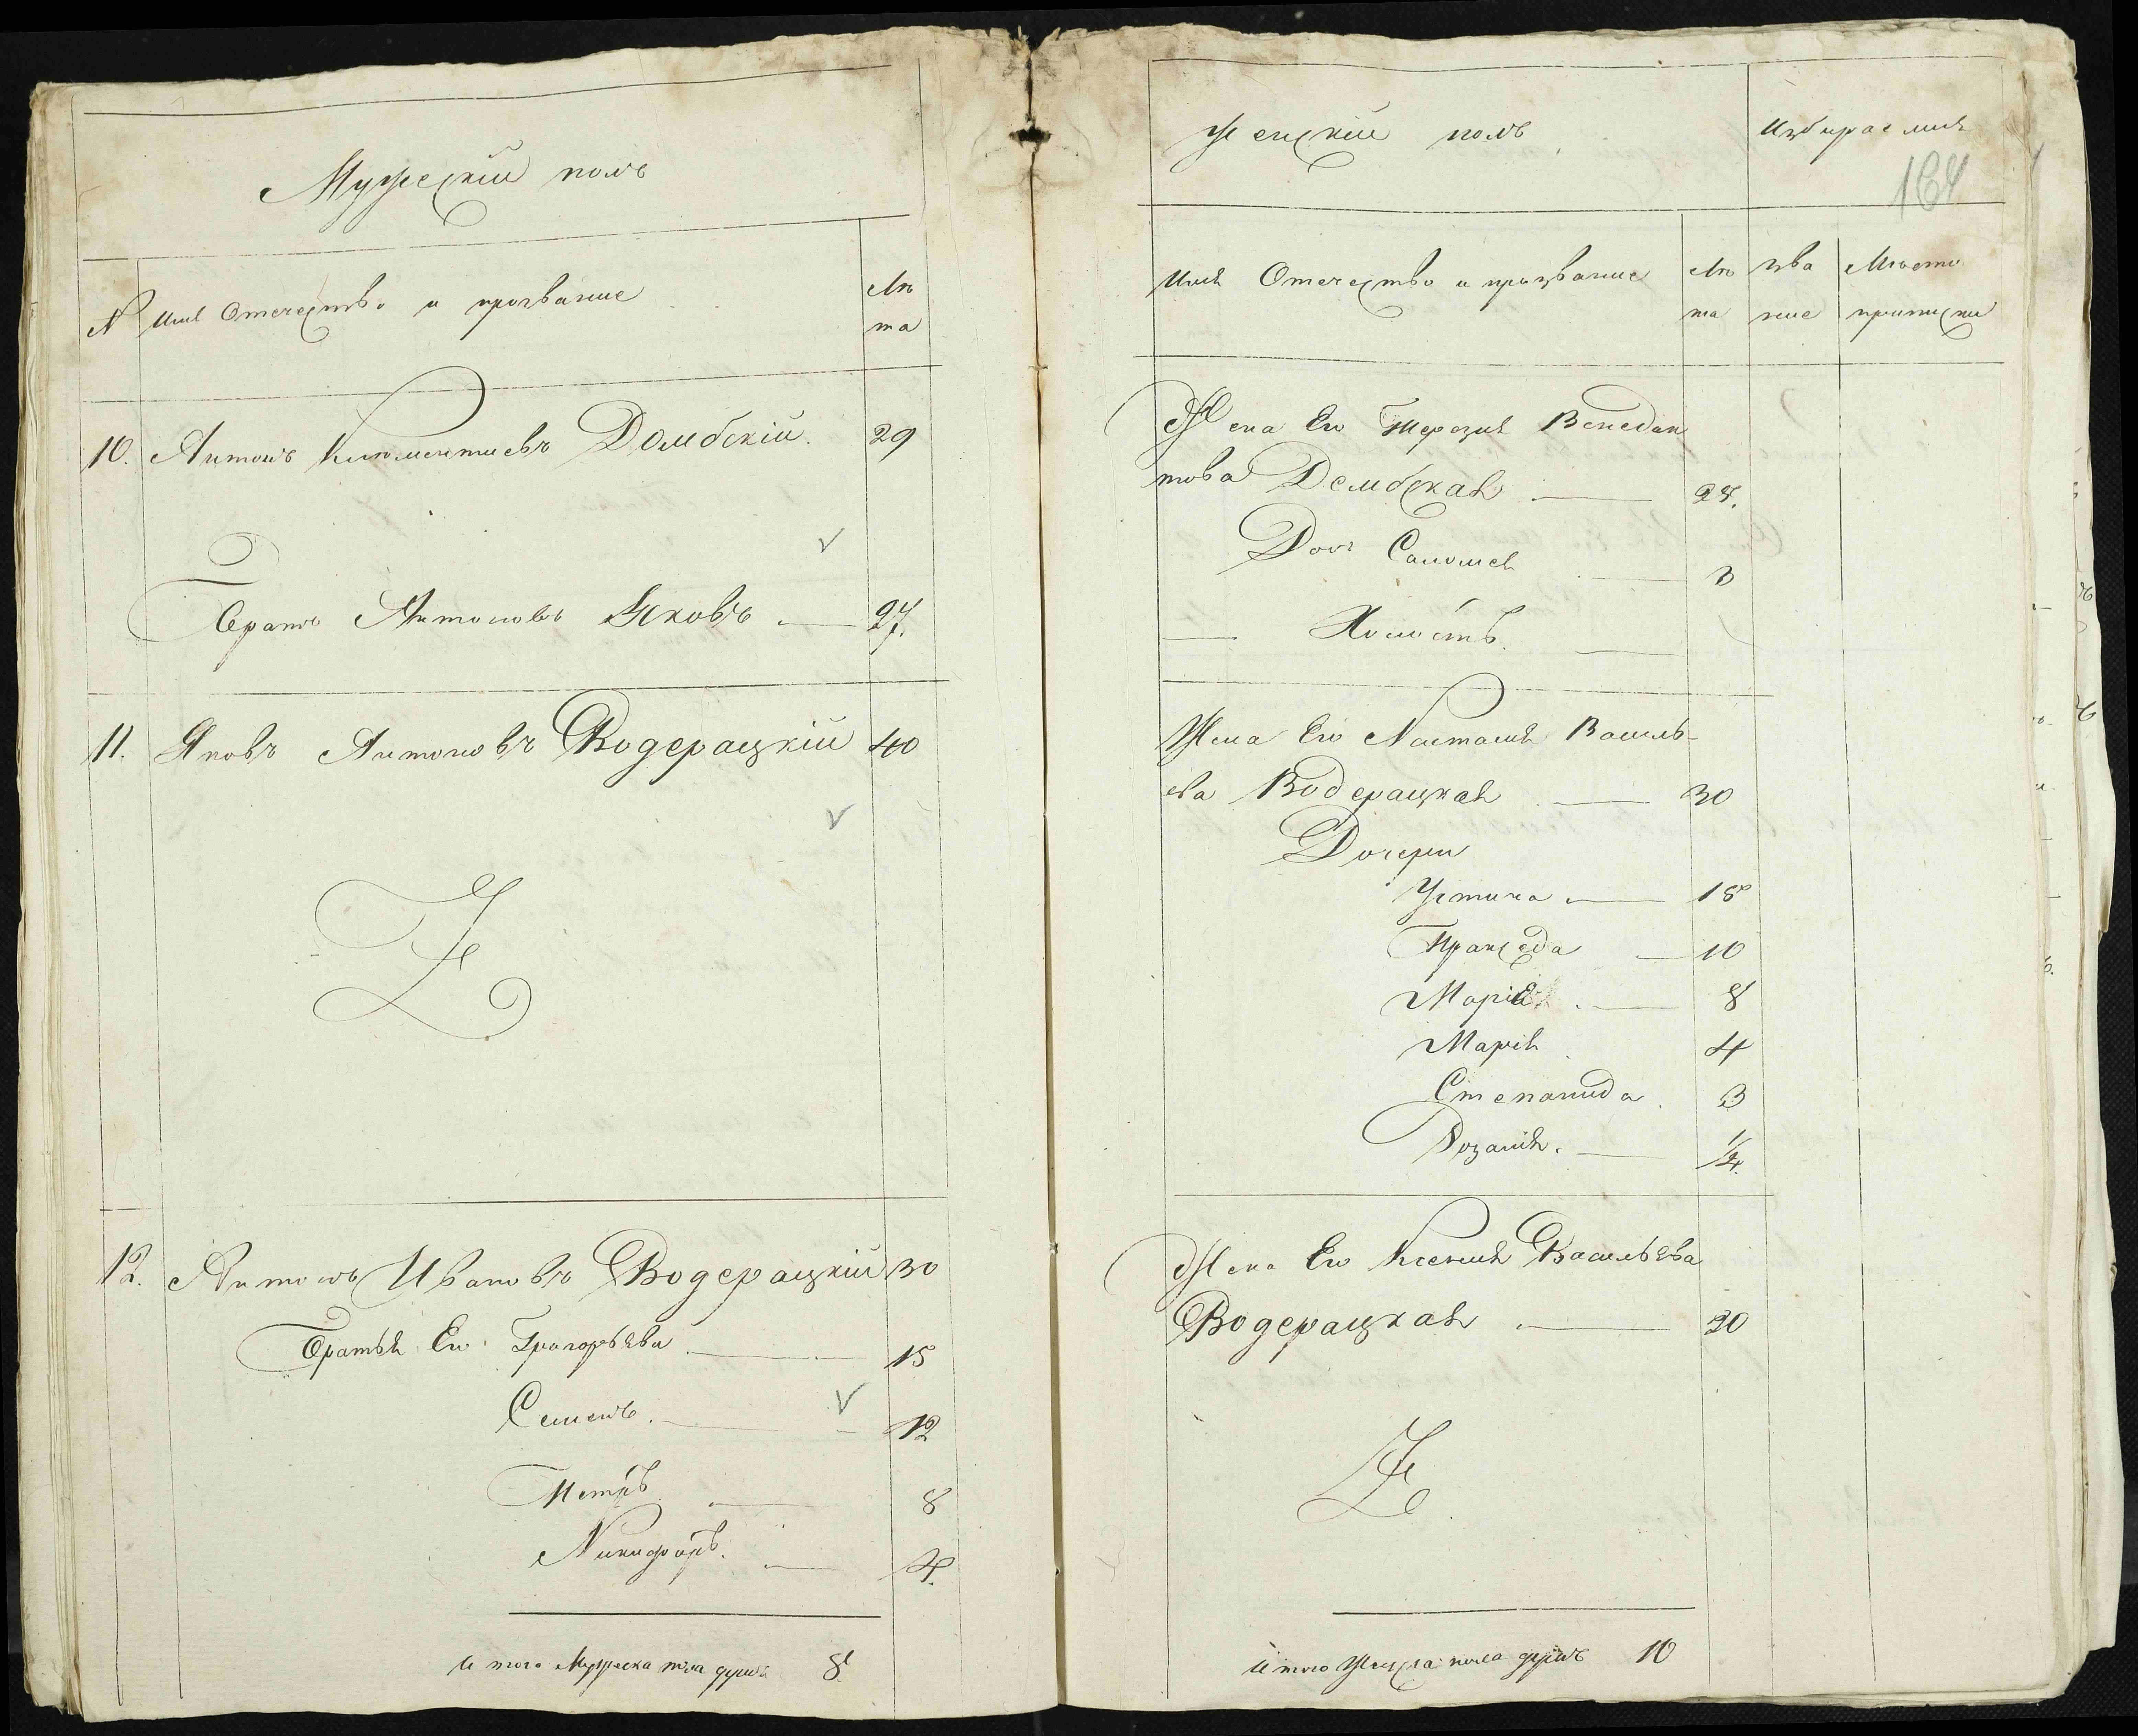 Мужескій полъ
N Имя Отечество и прозвание Ле
та
10. Антонъ Климентиевъ Домбскій. 29
Братъ Антоновъ Яковъ 27.
11. Яковъ Антоновъ Водерацкій 40
12. Антонъ Ивановъ Водерацкій 30
Братья Его Григорьева 15
Семенъ. 12
Петръ 8
Никифоръ. 4.
Итого Мужеска пола душъ 8.
Женскій полъ
Избираемия
164
Имя Отечество и прозвание Ле
та
Зва
ние
Место
приписки
Жена Его Терезия Венедик
това Домбская 27.
Доч Саломея 3
Холостъ.
Жена Его Настасия Василь-
ева Водерацкая 30
Дочери
Устина 18
Пракседа 10
Марія 8
Марія 4
Степанида 3
Розалия. 1/2.
Жена Его Ксения Васильева
Водерацкая 20
Итого Женска пола душъ 10